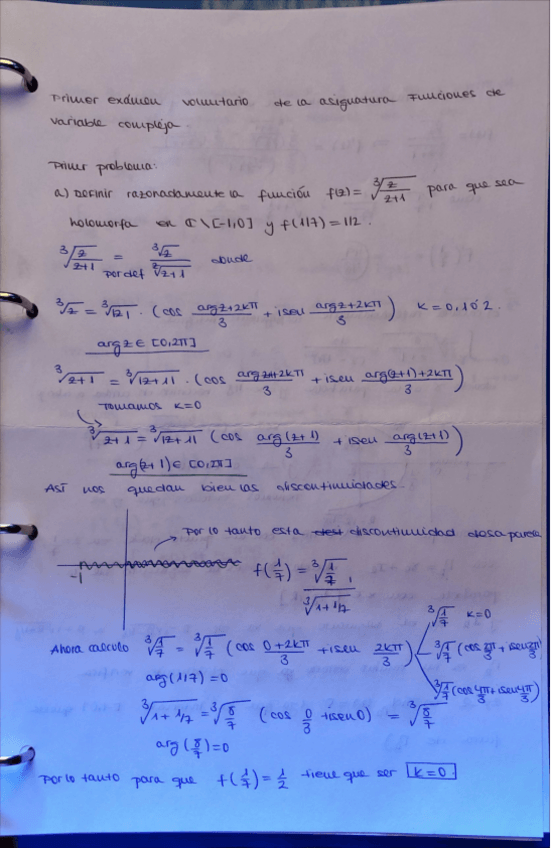 Primer exámen voluntario de la asignatura Funciones de
variable compleja.
Primer problema:
a) Definir razonadamente la función f(z) = ∛(z/(z+1)) para que sea
holomorfa en ℂ\[-1,0] y f(1/7) = 1/2.
∛(z/(z+1)) = por def ∛z/∛(z+1) donde
∛z = ∛|z| · (cos (arg z+2kπ)/3 + i sen (arg z+2kπ)/3) k = 0,1 ó 2.
arg z ∈ [0,2π]
∛(z+1) = ∛|z+1| · (cos (arg(z+1)+2kπ)/3 + i sen (arg(z+1)+2kπ)/3)
Tomamos k=0
∛(z+1) = ∛|z+1| (cos arg(z+1)/3 + i sen arg(z+1)/3)
arg(z+1) ∈ [0,2π]
Así nos quedan bien las discontinuidades.
Por lo tanto esta discontinuidad desaparece
-1
f(1/7) = ∛(1/7)/∛(1+1/7),
Ahora calculo ∛(1/7) = ∛(1/7) (cos (0+2kπ)/3 + i sen 2kπ/3)
∛(1/7) k=0
∛(1/7) (cos 2π/3 + i sen 2π/3)
∛(1/7) (cos 4π/3 + i sen 4π/3)
arg(1/7) = 0
∛(1+1/7) = ∛(8/7) (cos 0/3 + i sen 0) = ∛(8/7)
arg(8/7) = 0
Por lo tanto para que f(1/7) = 1/2 tiene que ser k=0.